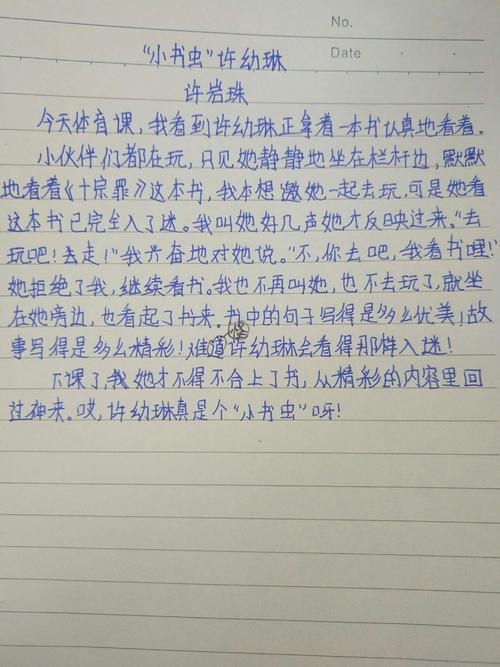 No.
Date
“小书虫”许幼琳
许岩珠
今天体育课，我看到许幼琳正拿着一本书认真地看着。
小伙伴们都在玩，只见她静静地坐在栏杆边，默默
地看着《十宗罪》这本书，我本想邀她一起去玩，可是她看
这本书已完全入了迷。我叫她好几声她才反映过来。“去
玩吧！去走！”我兴奋地对她说。“不，你去吧，我看书哩！”
她拒绝了我，继续看书。我也不再叫她，也不去玩了，就坐
在她旁边，也看起了书来。书中的句子写得是多么优美！故
怪
事写得是多么精彩！难道许幼琳会看得那样入迷！
下课了，我她才不得不合上了书，从精彩的内容里回
过神来。哎，许幼琳真是个“小书虫”呀！